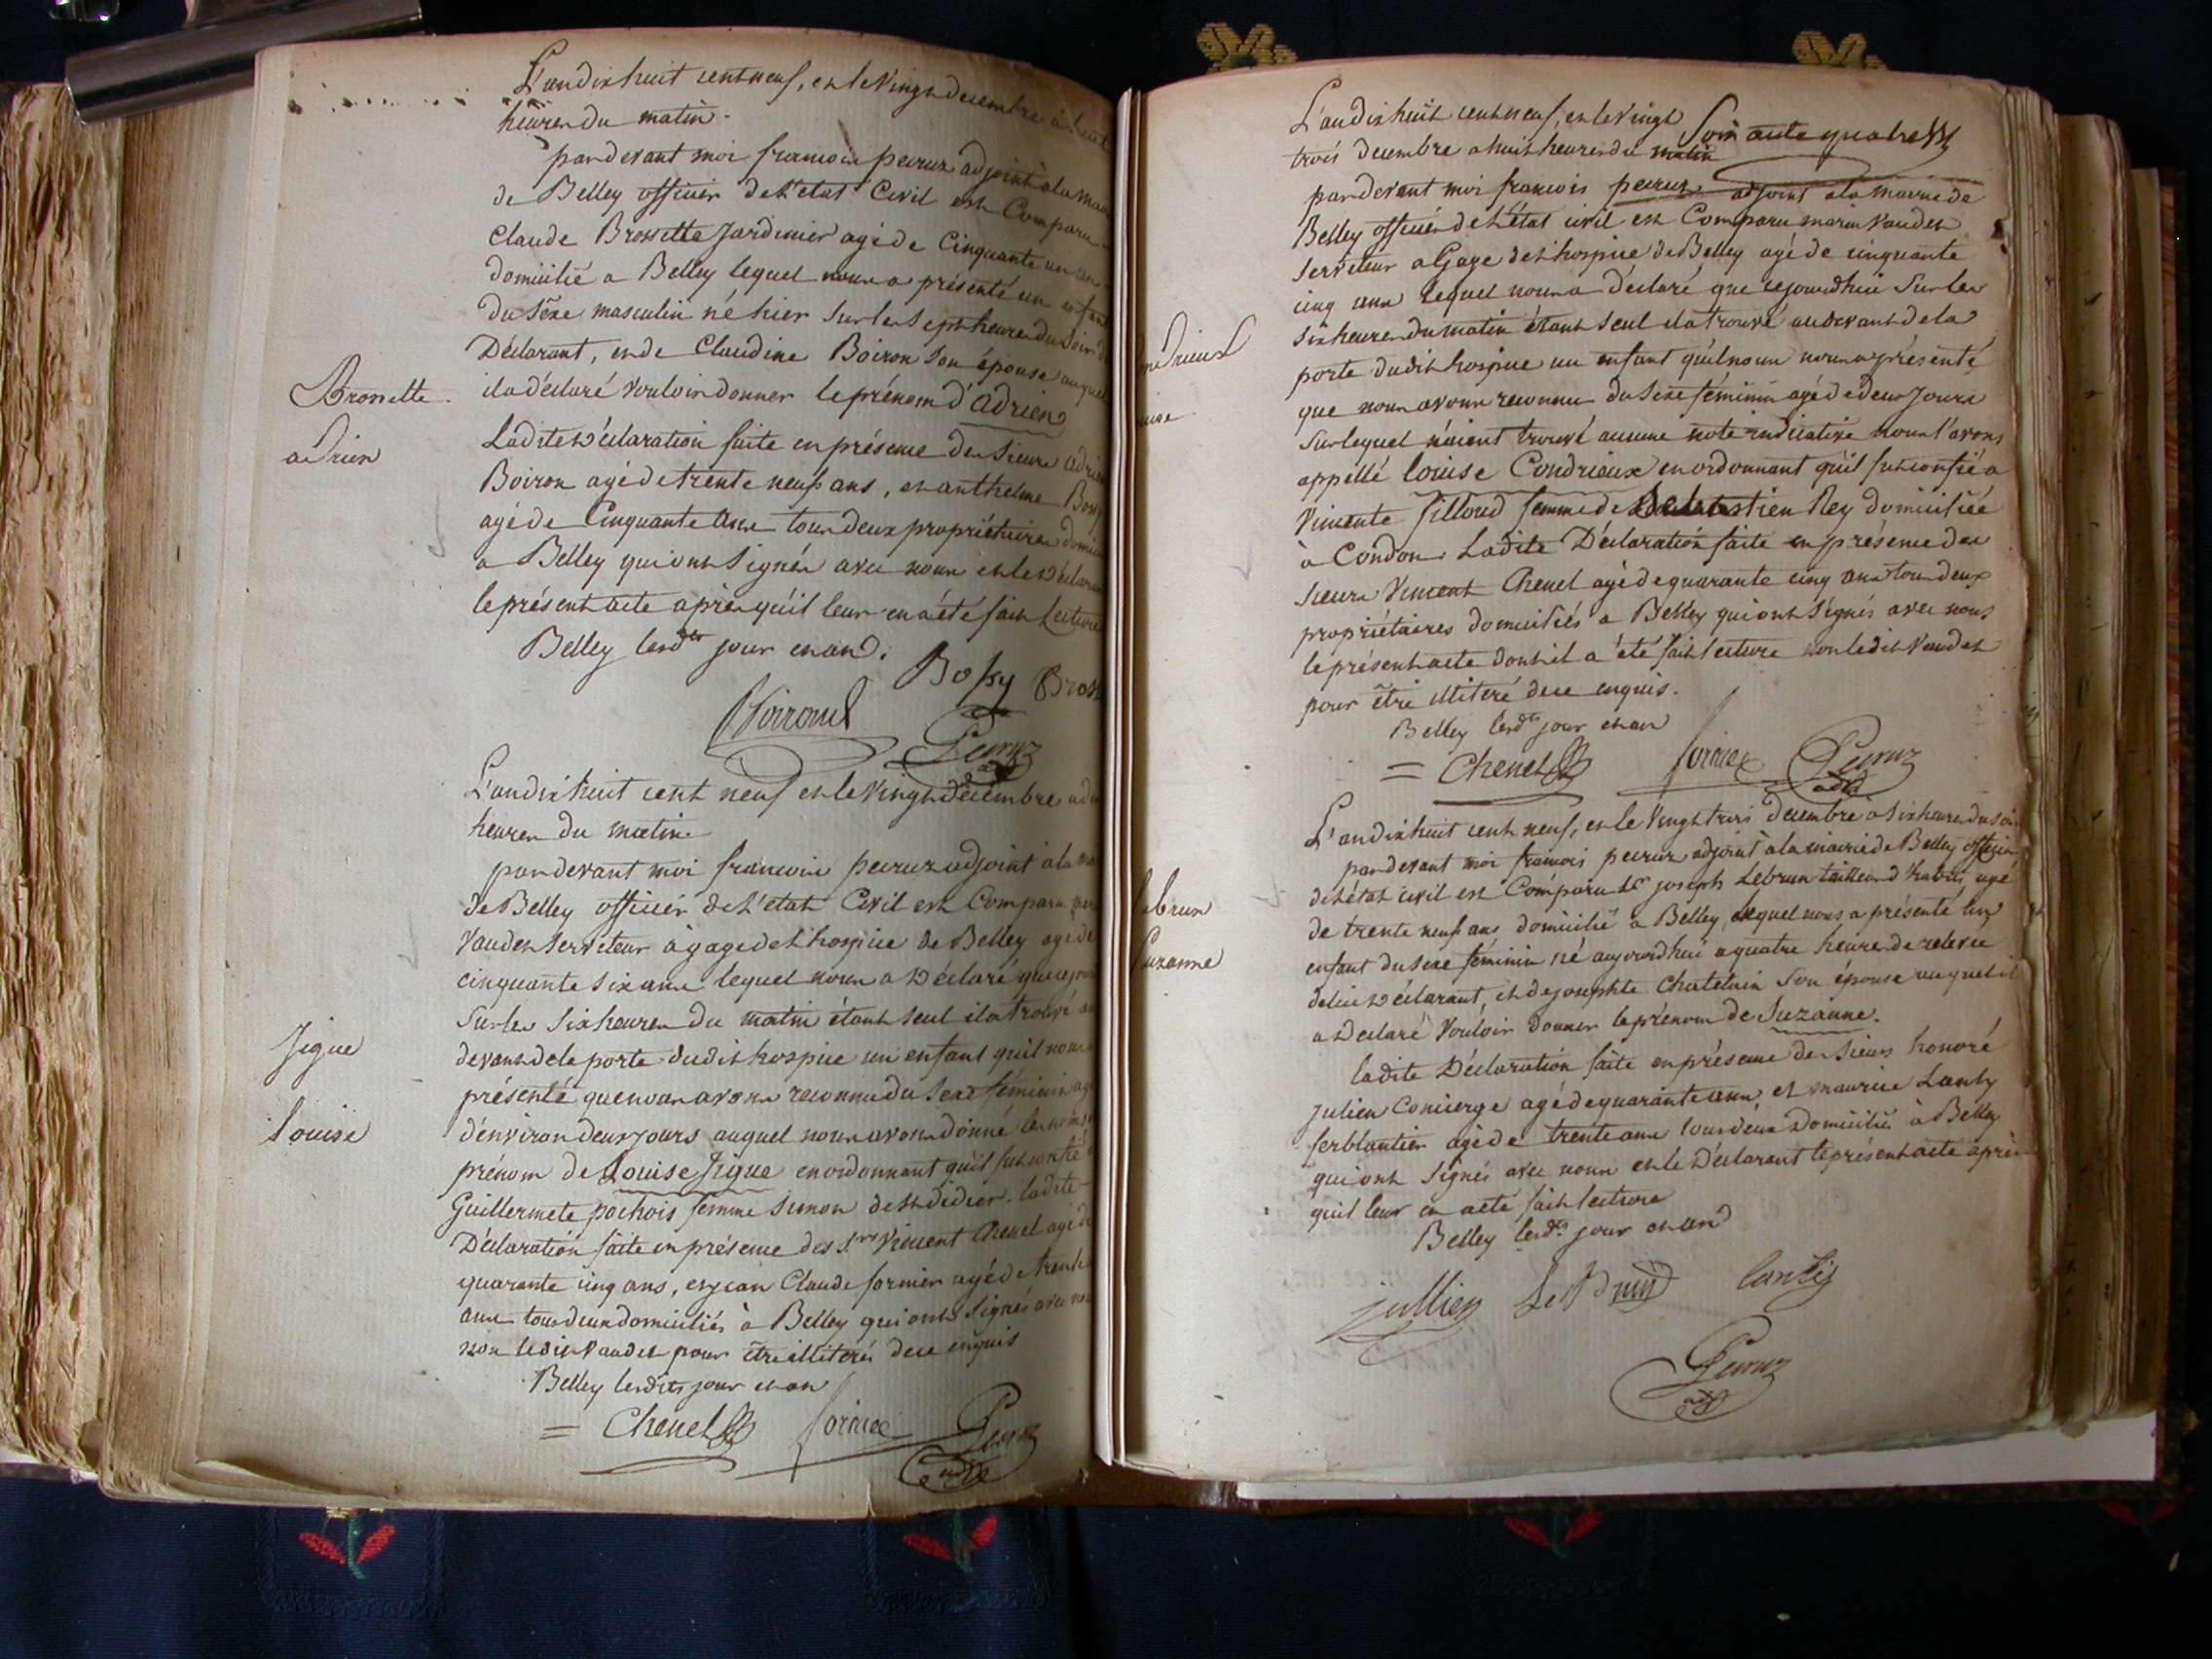 L'an dix huit cent neuf, et le Vingt decembre à huit
heures du matin.
pardevant moi francois peiruz adjoint à la mai
de Belley officier de L'etat Civil est Comparu
Claude Brossette Jardinier agé de Cinquante un ans
domicilié a Belley lequel nous a présenté un enfant
du Séxe masculin né hier Sur les Sept heures du Soir d
Déclarant, et de Claudine Boiron Son épouse auquel
il a déclaré vouloir donner le prénom d'adrien
Brossette
adrien
Ladite déclaration faite en présence des Sieurs adrien
Boiron agé de trente neuf ans, et anthelme Bossy
agé de Cinquante ans tous deux propriétaires domici
a Belley qui ont Signés avec nous et le déclarant
le présent acte après qu'il leur en a été fait Lecture
Belley lesdts jour et an.
Bossy Bross
Boiron
Peiruz
adj
L'an dix huit cent neuf et le vingt decembre a
heures du matin
pardevant moi francois peiruz adjoint à la mai
de Belley officier de L'etat Civil est Comparu
Vaudet Serviteur à gage de L'hospice de Belley agé de
cinquante six ans lequel nous a déclaré que ce jour
Sur les Six heures du matin étant seul il a trouvé au
devant de la porte dudit hospice un enfant qu'il nous
présenté que nous avons reconnu du Sexe féminin agé
d'environ deux jours auquel nous avons donné les noms
prénom de Louise figue en ordonnant qu'il fut confié
figue
Louise
Guillermete pochois femme Simon de St didier. ladite
Déclaration faite en présence des Srs Vincent Chenel agé de
quarante cinq ans, et jean Claude fornier agé de trente
ans tous deux domiciliés à Belley qui ont Signés avec nous
non ledit Vaudet pour être illitéré de ce enquis
Belley lesdits jour et an
= Chenel fornier Peiruz
adj
Soixante quatre
L'an dix huit cent neuf, et le vingt
trois decembre a huit heures du matin
pardevant moi francois peiruz adjoint a la mairie de
Belley officier de L'état civil est Comparu marin Vaudet
Serviteur a Gage de L'hospice de Belley agé de cinquante
cinq ans lequel nous a déclaré que cejourdhui Sur les
Six heures du matin étant Seul il a trouvé au devant de la
porte dudit hospice un enfant qu'il nous a présenté
que nous avons reconnu du Sexe féminin agé de deux Jours
Sur lequel n'aiant trouvé aucune note indicative nous l'avons
appellé Louise Condrieux en ordonnant qu'il fut confié a
ndrieux
uise
Vincente Jilloud femme de Rey domiciliée
à Condon. Ladite Déclaration faite en présence des
Sieurs Vincent Chenel agé de quarante cinq ans tous deux
propriétaires domiciliés a Belley qui ont Signés avec nous
le présent acte dont il a été fait lecture non ledit Vaudet
pour être illitéré de ce enquis.
Belley lesdts jour et an
= Chenel fornier Peiruz
adj
L'an dix huit cent neuf, et le Vingt trois decembre a Six heures du soir
pardevant moi francois peiruz adjoint à la mairie de Belley officier
de L'état civil est Comparu Sr joseph Lebrun tailleur d'habits agé
de trente neuf ans domicilié a Belley lequel nous a présenté un
enfant du sexe féminin né aujourdhui a quatre heures de relevée
de lui déclarant, et de josephte Chatelain Son épouse auquel il
a declaré Vouloir donner le prénom de Suzanne.
lebrun
Suzanne
ladite Déclaration faite en présence des Sieurs honoré
julien Concierge agé de quarante ans, et maurice Lanty
ferblantier agé de trente ans tous deux domiciliés à Belley
qui ont Signés avec nous et le Déclarant le présent acte après
qu'il leur en a été fait lecture
Belley lesdts jour et an
jullien Le Brun lantiy
Peiruz
adj